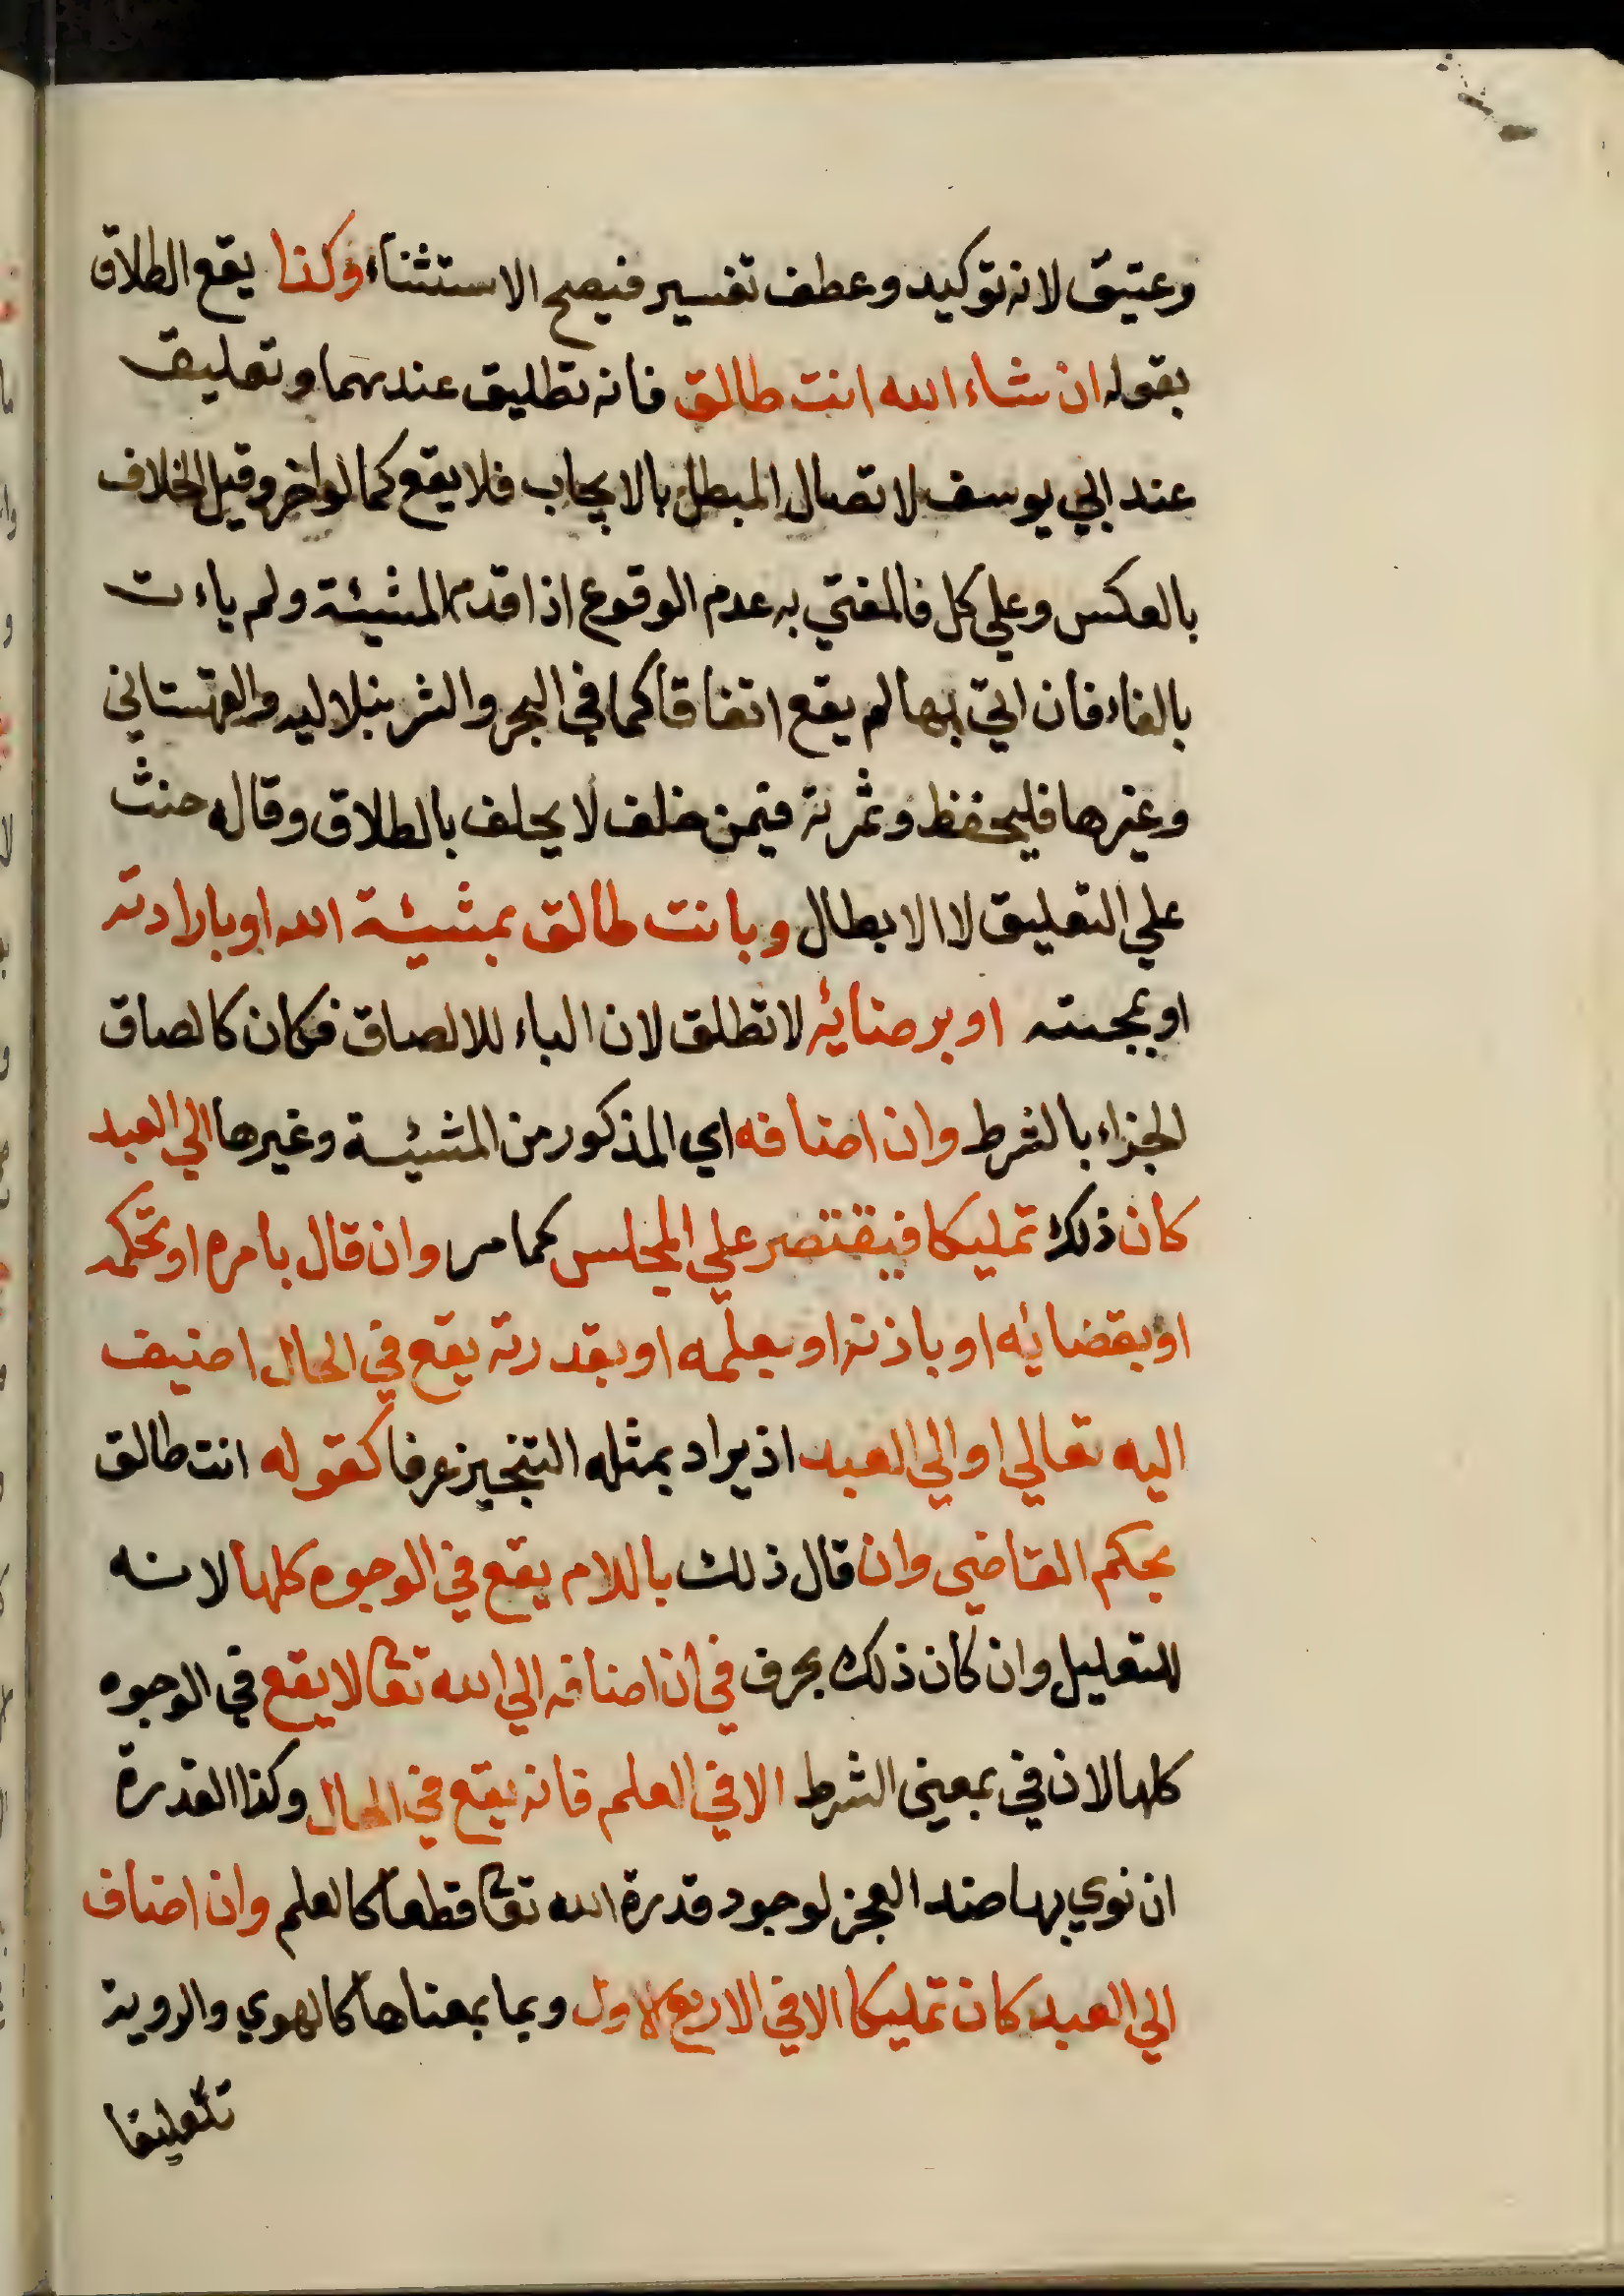 وعتيق لانه توكيد وعطف تفسير فيصح الاستثناء وكذا يقع الطلاق
بقوله ان شاء الله انت طالق فانه تطليق عندهما وتعليق
عند ابي يوسف لاتصال المبطل بالايجاب فلا يقع كما لو اخر وقيل الخلاف
بالعكس وعلي كل فالمفتي به عدم الوقوع اذا قدم المشيئة ولم ياءت
بالفاء فان اتي بها لم يقع اتفاقا كما في البحر والشرنبلاليه والقهستاني
وغيرها فليحفظ وثمرته فيمن حلف لا يحلف بالطلاق وقاله حنث
علي التعليق لا الابطال وبانت طالق بمشيئة الله او بارادته
او بمحبته او برضائه لا تطلق لان الباء للالصاق فكان كالصاق
الجزاء بالشرط وان اضافه اي المذكور من المشيئة وغيرها الي العبد
كان ذلك تمليكا فيقتصر علي المجلس كما مر وان قال بامره او بحكمه
او بقضائه او باذنه او بعلمه او بقدرته يقع في الحال اضيف
اليه تعالي او الي العبد اذ يراد بمثله التنجيز عرفا كقوله انت طالق
بحكم القاضي وان قال ذلك باللام يقع في الوجوه كلها لانه
للتعليل وان كان ذلك بحرف في ان اضافه الي الله تعا لا يقع في الوجوه
كلها لان في بمعني الشرط الا في العلم فانه يقع في الحال وكذا القدرة
ان نوي بها ضد العجز لوجود قدرة الله تعا قطعا كالعلم وان اضاف
الي العبد كان تمليكا الا في الاربع الاول وبما بمعناها كالهوي والروية
تعليقا